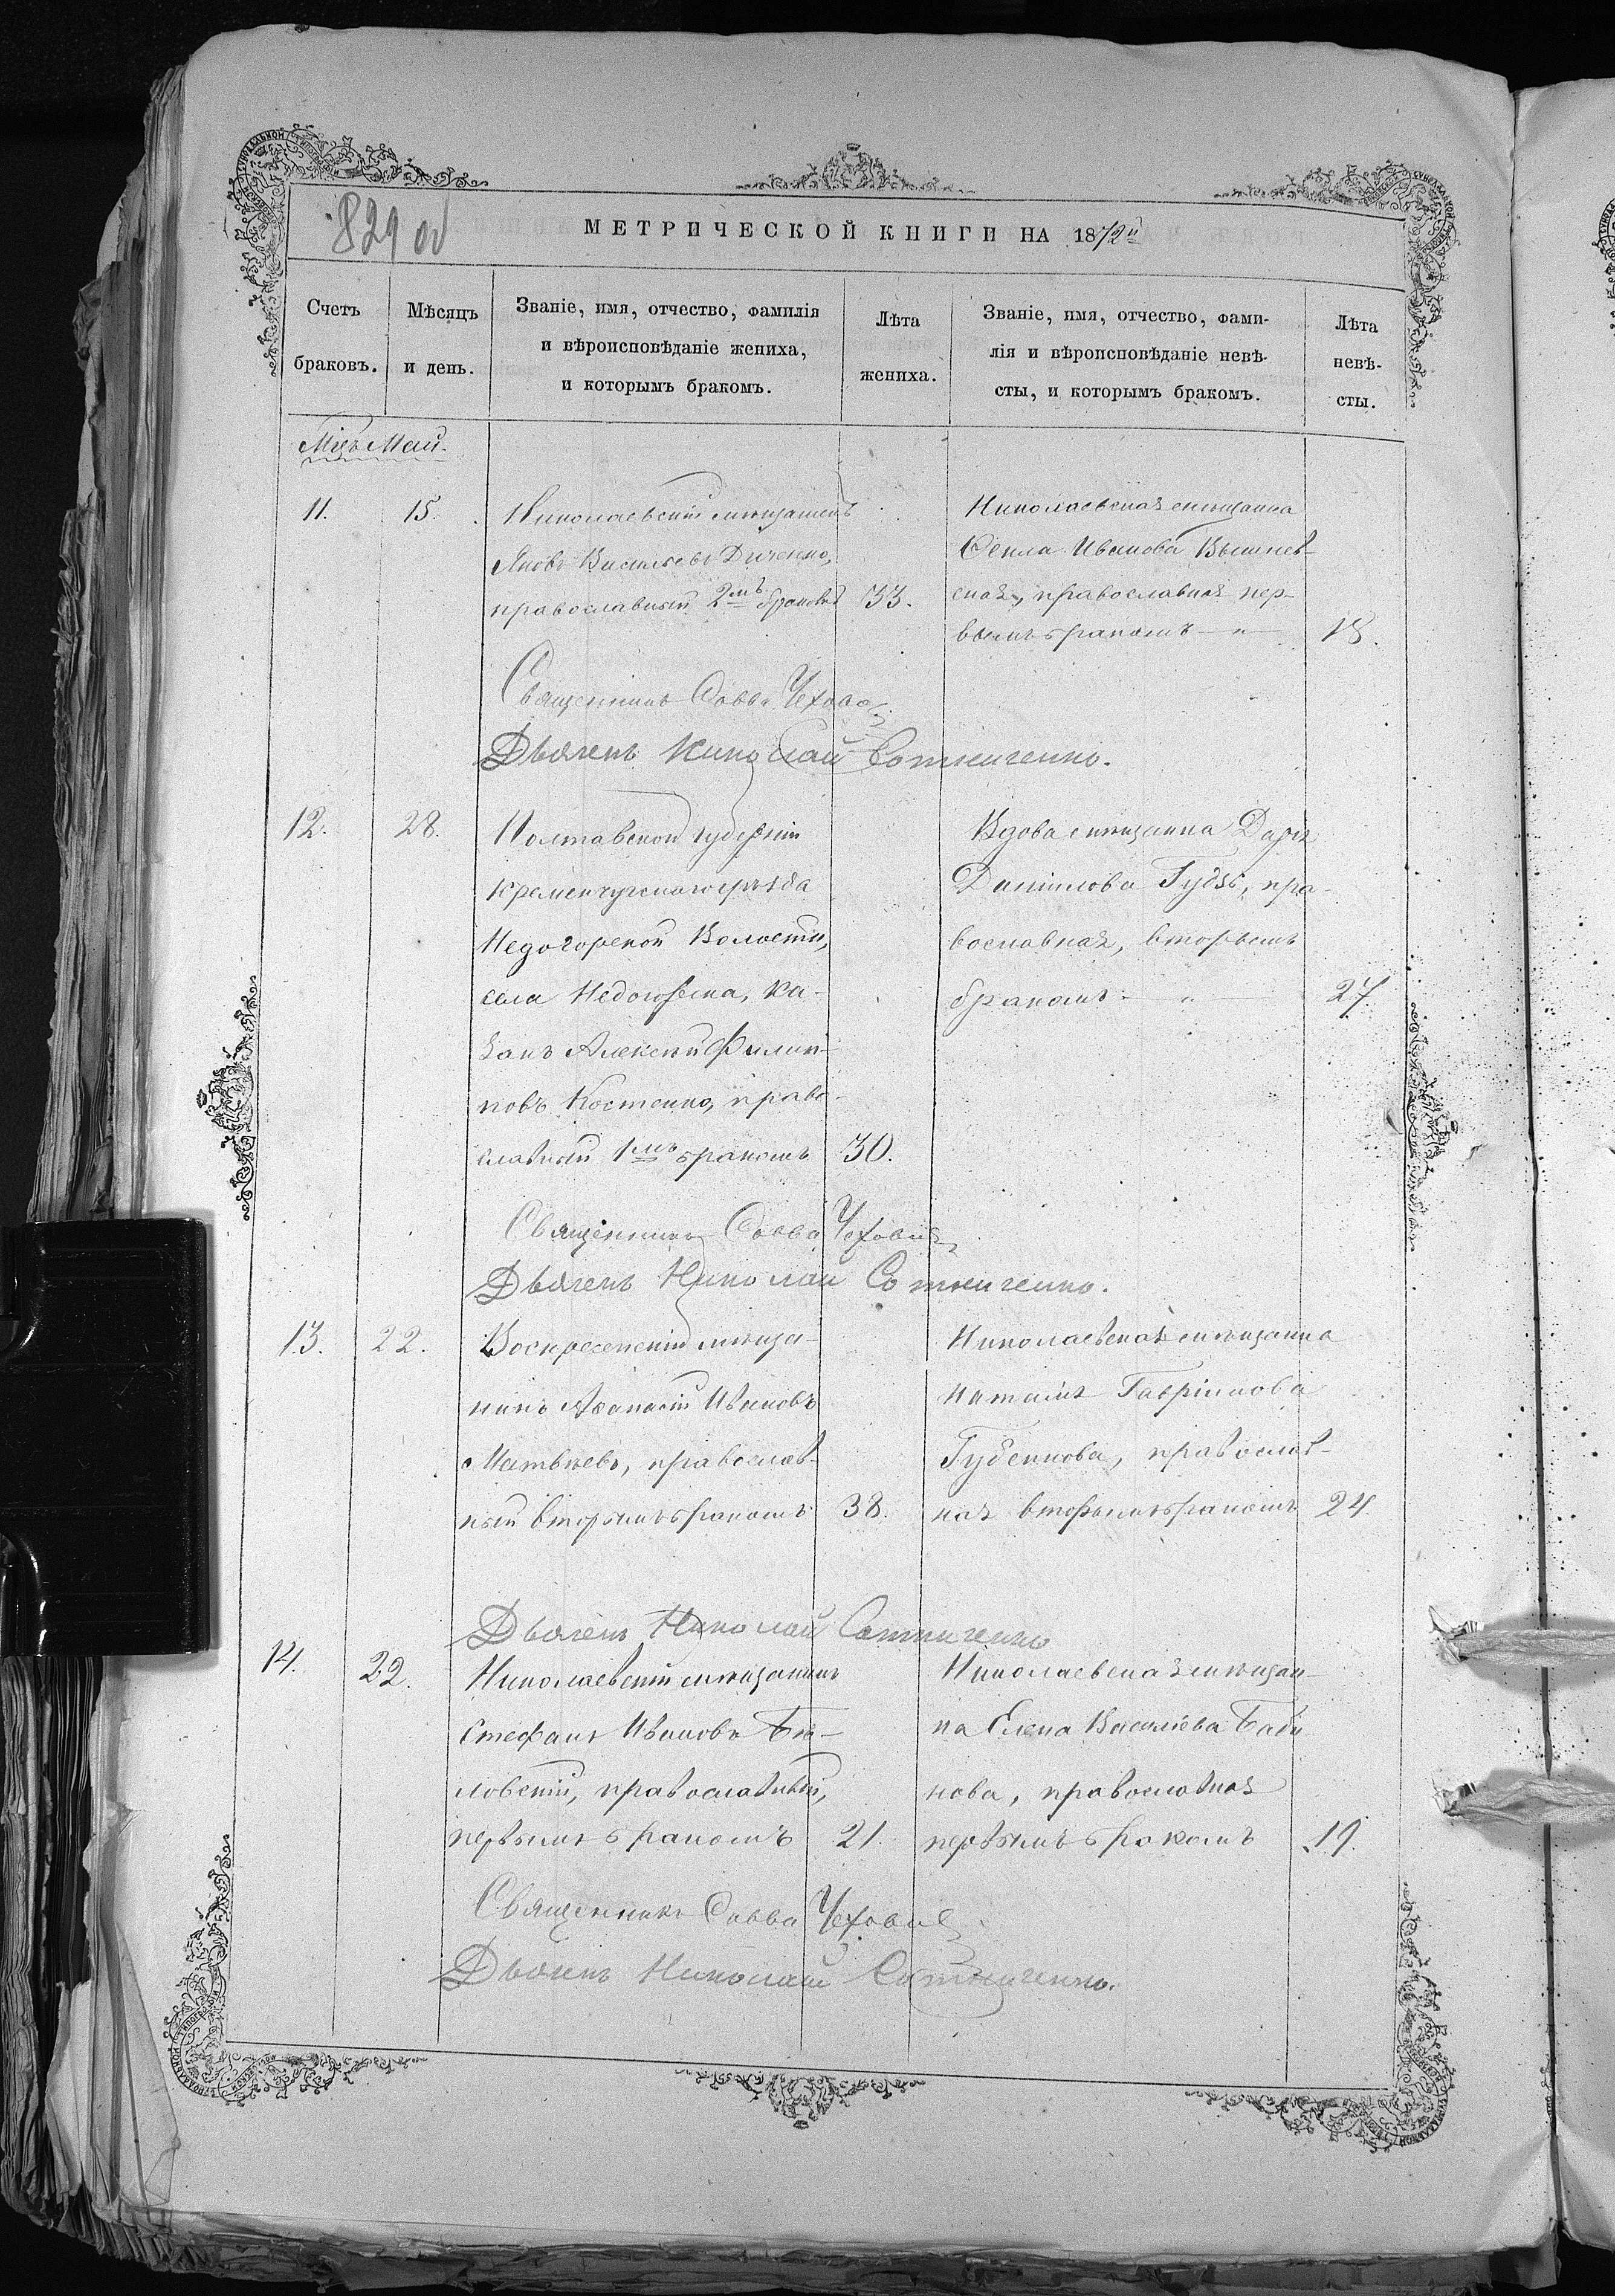 829 об
МЕТРИЧЕСКОЙ КНИГИ НА 1872й
Счетъ
браковъ.
Мѣсяцъ
и день.
Званіе, имя, отчество, фамилія
и вѣроисповѣданіе жениха,
и которымъ бракомъ.
Лѣта
жениха.
Званіе, имя, отчество, фами-
лія и вѣроисповѣданіе невѣ-
сты, и которымъ бракомъ.
Лѣта
невѣ-
сты.
Мцъ Май.
11.
15.
Николаевскій мѣщанинъ
Яковъ Васильевъ Диченко,
православный 2мъ бракомъ
33.
Николаевская мѣщанка
Фекла Иванова Вышнев-
ская, православная пер-
вымъ бракомъ
18.
Священникъ Савва
Дьячекъ Николай Сотниченко.
12.
28.
Полтавской губерніи
Кременчугскаго уѣзда
Недогорской Волости,
села Недогорска, ка-
закъ Алексѣй Филип-
повъ Костенко, право-
славный 1мъ бракомъ
30.
Вдова мѣщанка Дарія
Даніилова пра-
вославная, вторымъ
бракомъ
27.
Священникъ Савва
Дьячекъ Николай Сотниченко.
13.
22.
Воскресенскій мѣща-
нинъ Афанасій Ивановъ
Матвѣевъ, православ-
ный вторымъ бракомъ
38.
Николаевская мѣщанка
Наталія Гавріилова
Губенкова, православ-
ная вторымъ бракомъ
24.
Дьячекъ Николай Сотниченко
14.
22.
Николаевскій мѣщанинъ
Стефанъ Ивановъ Бѣ-
ловскій, православный,
первымъ бракомъ
21.
Николаевская мѣщан-
ка Елена Василіева Баби
нова, православная
первымъ бракомъ
19.
Священникъ Савва
Дьячекъ Николай Сотниченко.